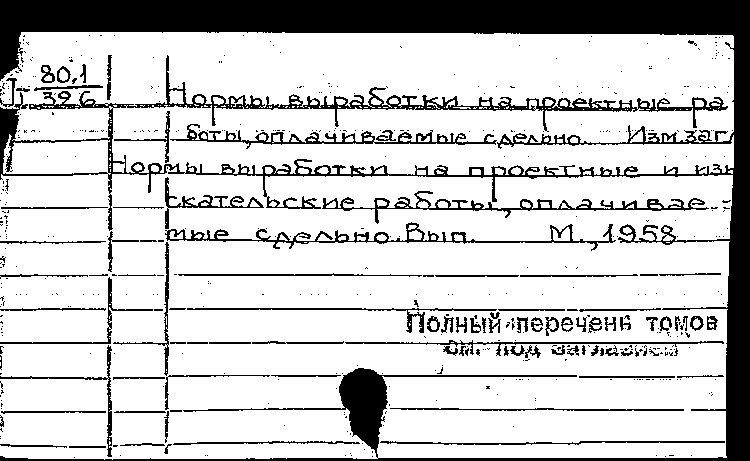 П 80,1
396
Нормы выработки на проектные ра-
боты, оплачиваемые сдельно. Изм.загл
Нормы выработки на проектные и изы
скательские работы, оплачивае-
мые сдельно. Вып. М., 1958
Полный перечень томов
см. под заглавием